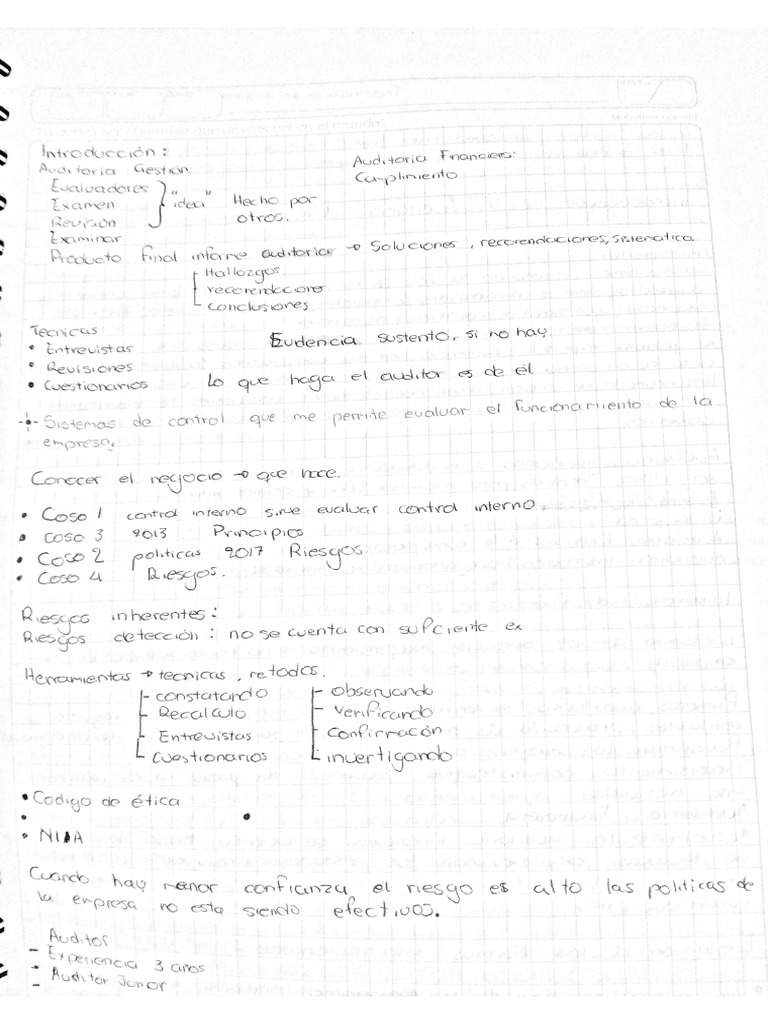 Introducción:
Auditoria Financiera:
Auditoria Gestion
Cumplimiento
Evaluadores
Examen
Revisión
"idea" Hecho por
otros.
Examinar
Producto final informe auditoria → Soluciones, recomendaciones, sistematica.
Hallazgos
recomendaciones
conclusiones
Tecnicas
• Entrevistas
• Revisiones
• Cuestionarios
Evidencia sustento, si no hay.
Lo que haga el auditor es de él.
Sistemas de control que me permite evaluar el funcionamiento de la
empresa.
Conocer el negocio → que hace.
• Coso 1 control interno sirve evaluar control interno
• COSO 3 2013 Principios
• COSO 2 politicas 2017 Riesgos
• COSO 4 Riesgos.
Riesgos inherentes:
Riesgos detección: no se cuenta con suficiente ex
Herramientas → tecnicas, metodos.
constatando
Recalculo
Entrevistas
Cuestionarios
observando
verificando
confirmacón
invertigando
• Codigo de ética
• NIA
Cuando hay menor confianza el riesgo es alto las politicas de
la empresa no esta siendo efectivos.
Auditor
- Experiencia 3 años
- Auditor Junior